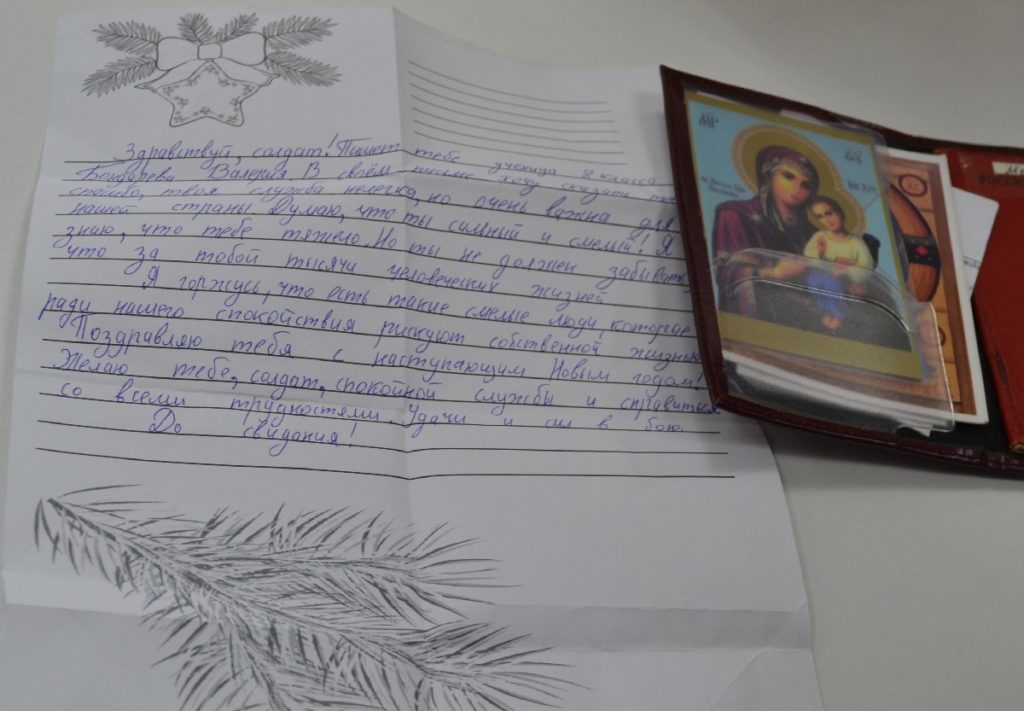 Здравствуй, солдат! Пишет тебе ученица 8 класса
Бондарева Валерия. В своём письме хочу сказать
твоя служба нелегка, но очень важна для
нашей страны. Думаю, что ты сильный и смелый! Я
знаю, что тебе тяжело. Но ты не должен забывать,
что за тобой тысячи человеческих жизней.
Я горжусь, что есть такие смелые люди, которые
ради нашего спокойствия рискуют собственной жизнью.
Поздравляю тебя с наступающим Новым годом!
Желаю тебе, солдат, спокойной службы и справиться
со всеми трудностями. Удачи и сил в бою.
До свидания!
МР
РОССИ